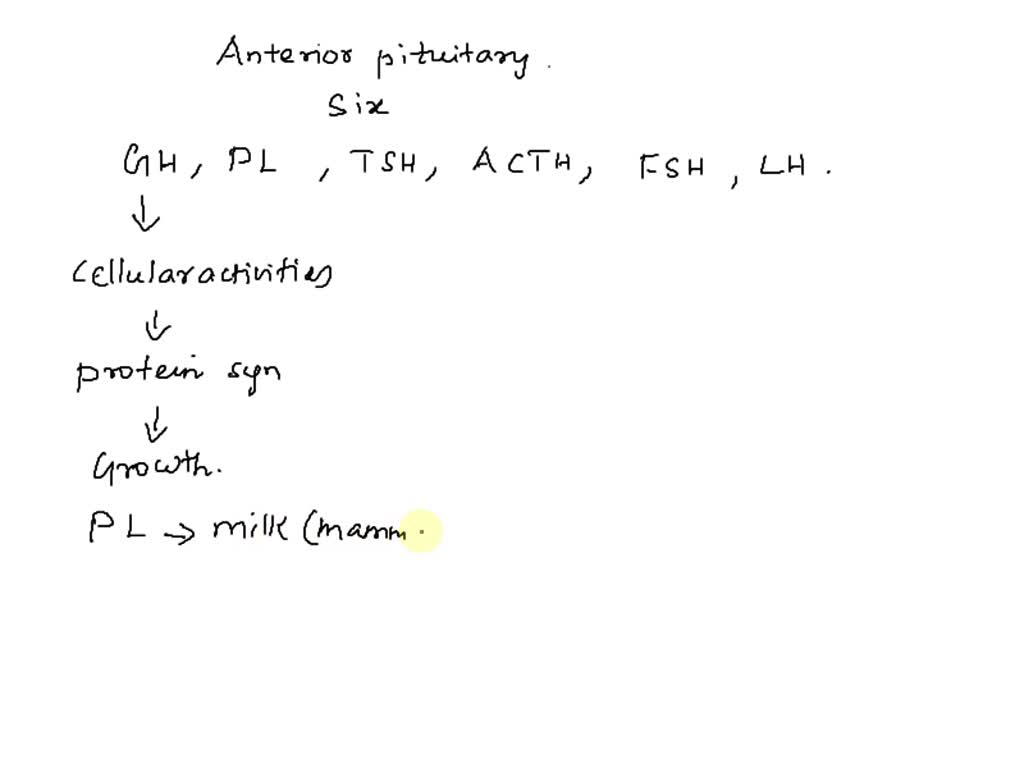 Anterior pituitary.
Six
GH, PL, TSH, ACTH, FSH, LH.
↓
Cellular activities
↓
protein syn
↓
Growth.
PL → milk (mamm